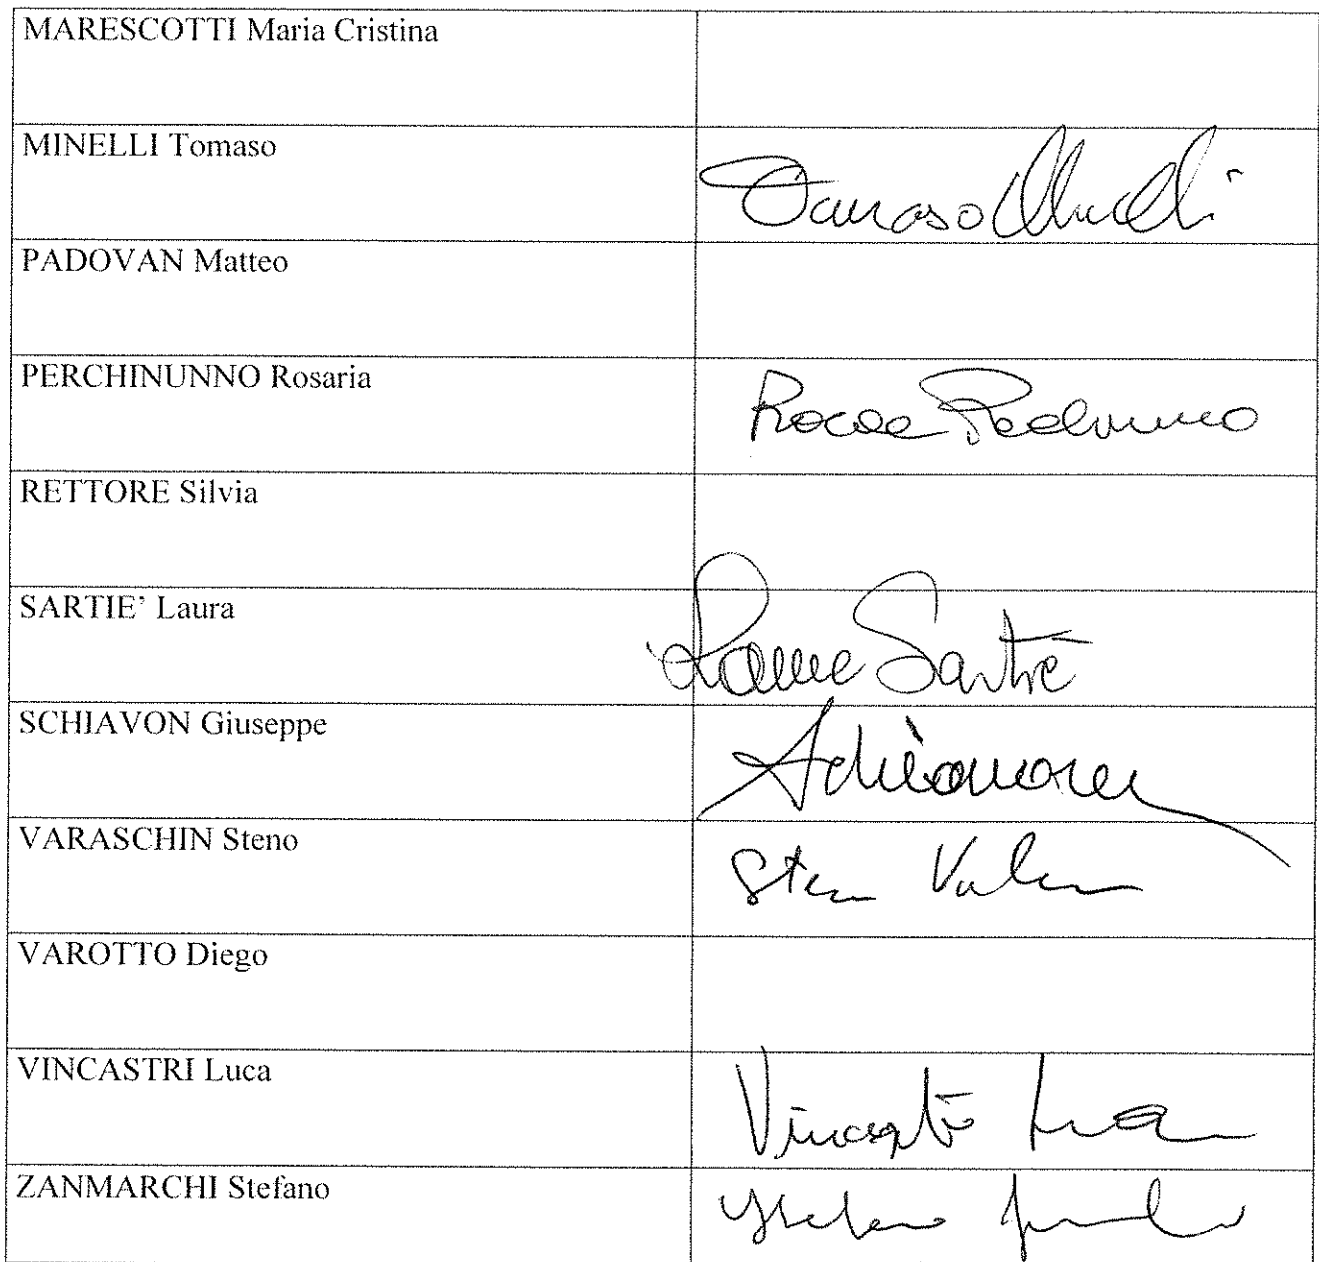 MARESCOTTI Maria Cristina
MINELLI Tomaso
Tomaso Minelli
PADOVAN Matteo
PERCHINUNNO Rosaria
RETTORE Silvia
SARTIE' Laura
Laura Sartiè
SCHIAVON Giuseppe
VARASCHIN Steno
Steno
VAROTTO Diego
VINCASTRI Luca
Vincastri Luca
ZANMARCHI Stefano
Stefano